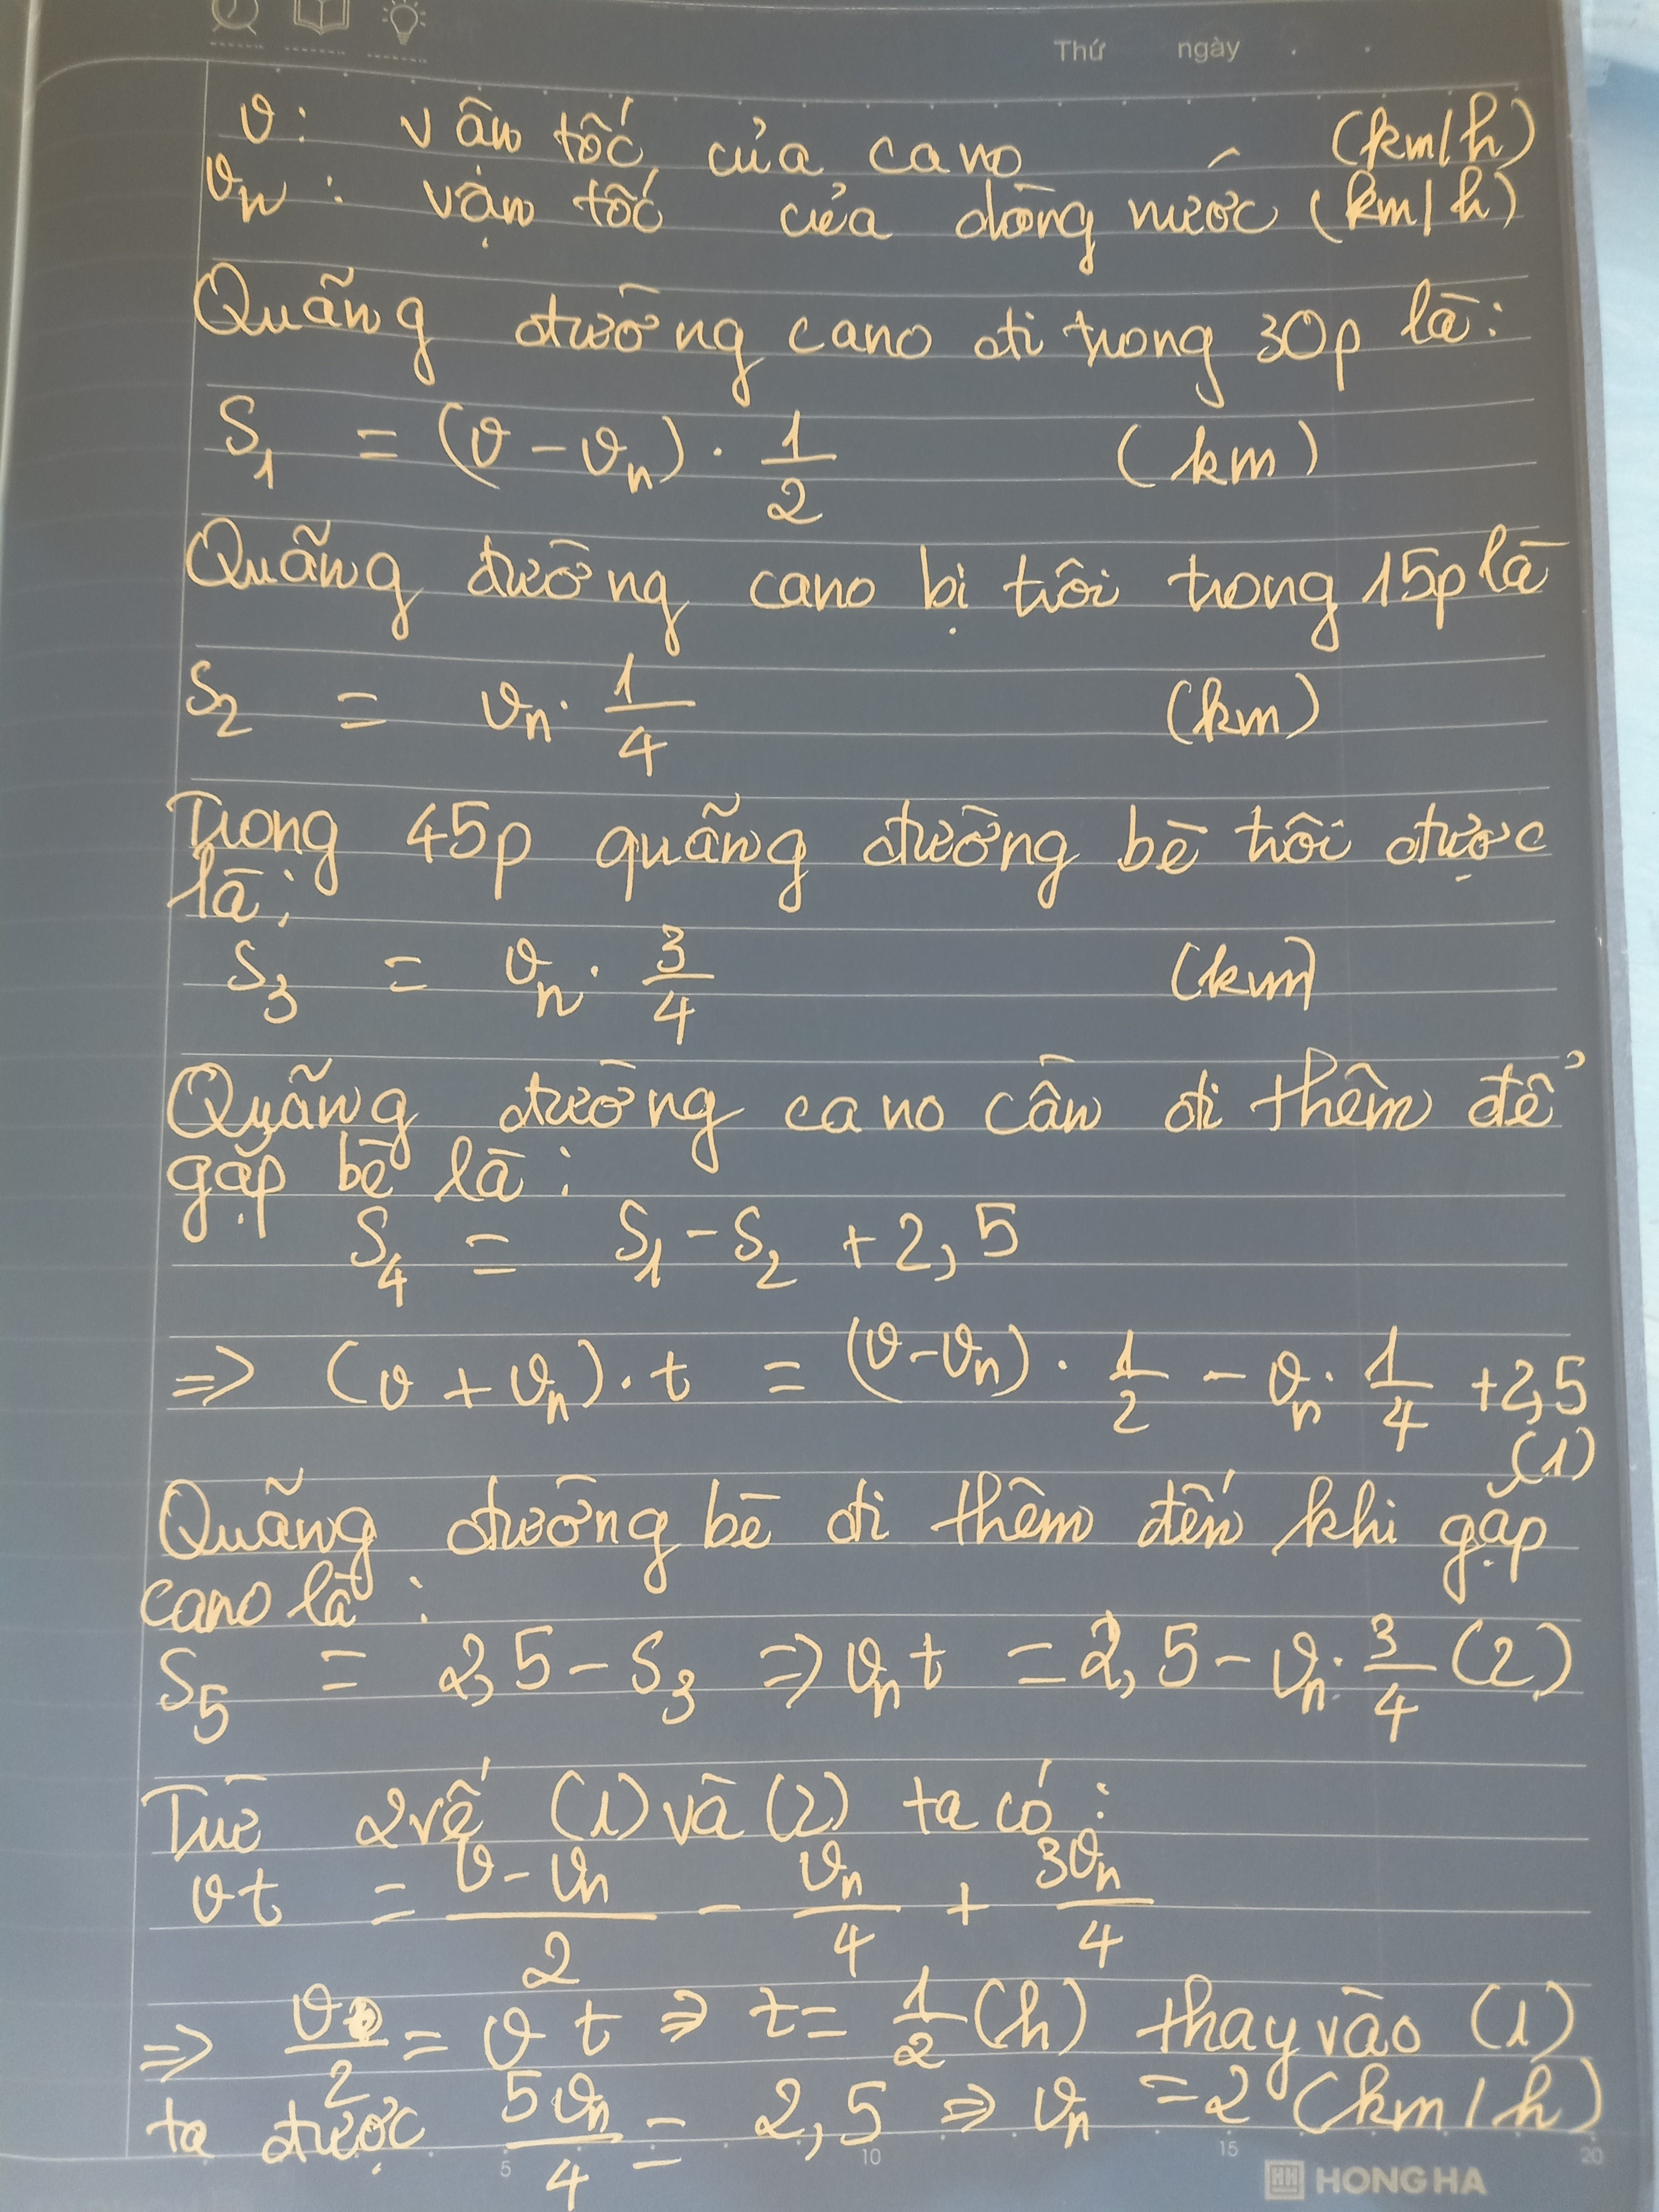 Thứ ngày . .
v: vân tốc của cano (km/h)
vn: vận tốc của dòng nước (km/h)
Quãng đường cano đi trong 30p là:
S1 = (v - vn) . 1/2 (km)
Quãng đường cano bị trôi trong 15p là
S2 = vn . 1/4 (km)
Trong 45p quãng đường bè trôi được
là:
S3 = vn . 3/4 (km)
Quãng đường cano cần đi thêm để
gặp bè là:
S4 = S1 - S2 + 2,5
=> (v + vn) . t = (v - vn) . 1/2 - vn . 1/4 + 2,5
(1)
Quãng đường bè đi thêm đến khi gặp
cano là:
S5 = 2,5 - S3 => vn t = 2,5 - vn . 3/4 (2)
Từ 2 vế (1) và (2) ta có:
vt = (v - vn)/2 - vn/4 + 3vn/4
=> v/2 = v t => t = 1/2 (h) thay vào (1)
ta được 5vn/4 = 2,5 => vn = 2 (km/h)
5 10 15 20
HH HONG HA